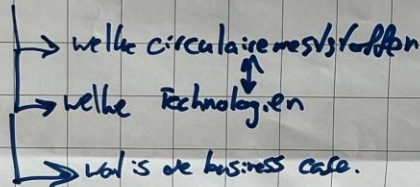 welke circulaire meststoffen
welke Technologien
wat is de business case.